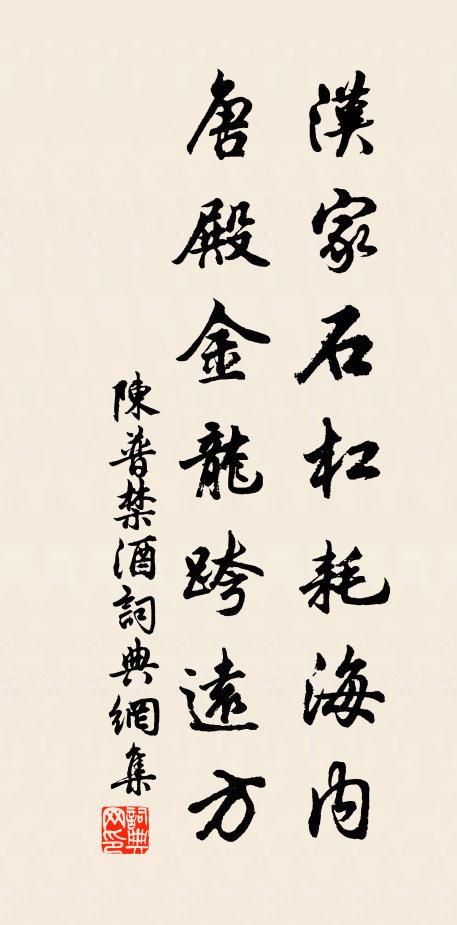 漢家石杠耗海内
唐殿金龍跨遠方
陳普禁酒詞典網集
詞典网印